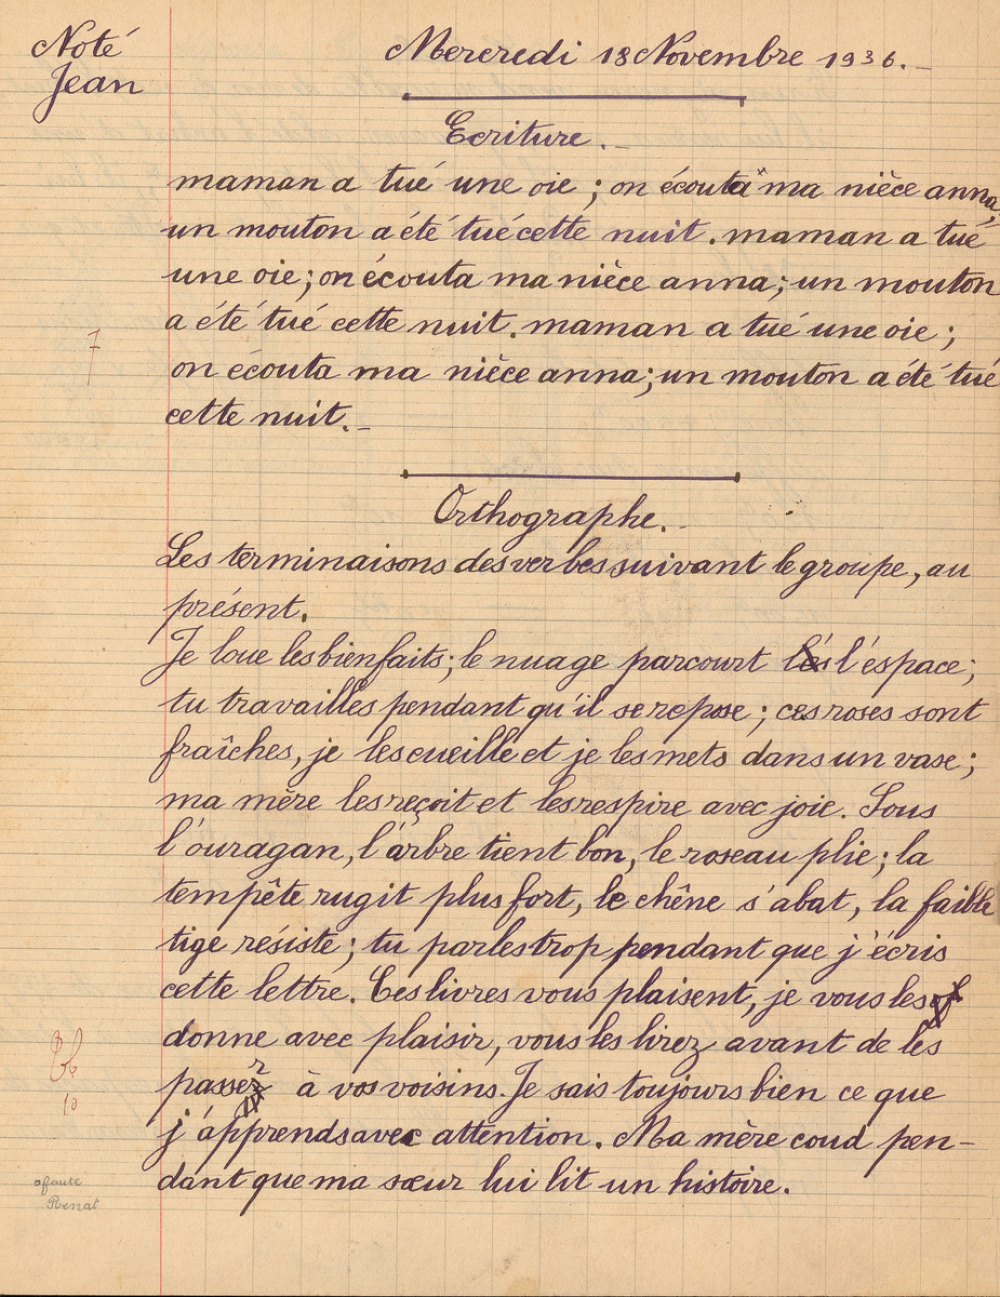 Noté
Jean
Mercredi 18 Novembre 1936.
Ecriture.
maman a tué une oie ; on écouta ma nièce anna,
un mouton a été tué cette nuit. maman a tué
une oie ; on écouta ma nièce anna ; un mouton
a été tué cette nuit. maman a tué une oie ;
on écouta ma nièce anna ; un mouton a été tué
cette nuit.
7
Orthographe.
Les terminaisons des verbes suivant le groupe, au
présent.
Je loue les bienfaits ; le nuage parcourt les l'espace ;
tu travailles pendant qu'il se repose ; ces roses sont
fraîches, je les cueille et je les mets dans un vase ;
ma mère les reçoit et les respire avec joie. Sous
l'ouragan, l'arbre tient bon, le roseau plie ; la
tempête rugit plus fort, le chêne s'abat, la faible
tige résiste ; tu parles trop pendant que j'écris
cette lettre. Ces livres vous plaisent, je vous les
donne avec plaisir, vous les lirez avant de les
passer à vos voisins. Je sais toujours bien ce que
j'apprends avec attention. Ma mère coud pen-
dant que ma sœur lui lit un histoire.
10
0 faute